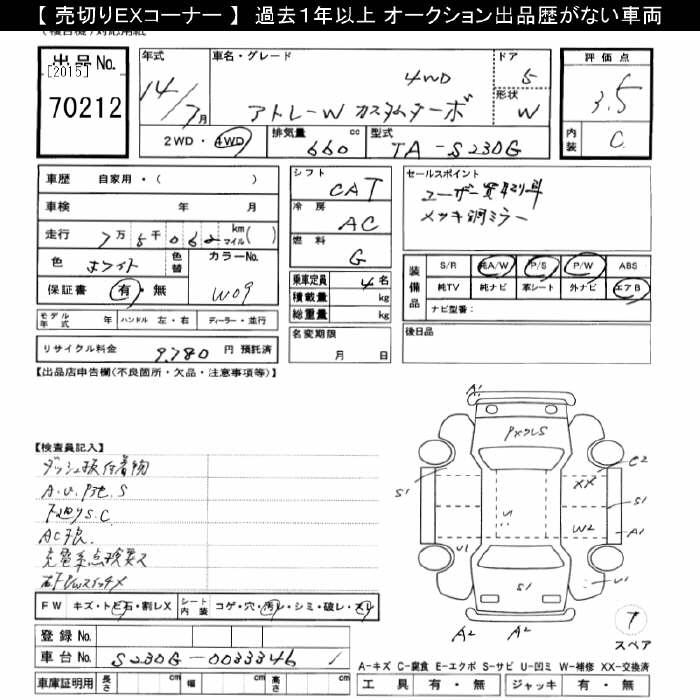 【 売切りEXコーナー 】 過去1年以上 オークション出品歴がない車両
出品No.
[2015]
70212
年式
14/7月
車名・グレード
4WD
アトレーW カスタムターボ
ドア
5
形状
W
評価点
3.5
内装
C
2WD・4WD
排気量 660 cc
型式 TA-S230G
車歴 自家用・( )
車検 年 月
走行 7万5千062 km マイル( )
色 ホワイト 色替
カラーNo.
W09
保証書 有・無
モデル年式 年 ハンドル 左・右 ディーラー・並行
リサイクル料金 9,780 円 預託済
シフト CAT
冷房 AC
燃料 G
乗車定員 4 名
積載量 kg
総重量 kg
名変期限
月 日
セールスポイント
ユーザー買取り車
メッキ調ミラー
装備品
S/R 純A/W P/S P/W ABS
純TV 純ナビ 革シート 外ナビ エアB
ナビ型番:
後日品
【出品店申告欄(不良箇所・欠品・注意事項等)】
【検査員記入】
ダッシュ板付着物
A.U.P他.S
下廻りS.C
AC不良
FW キズ・トビ石・割レX
シート内装 コゲ・穴・汚レ・シミ・破レ・スレ
登録No.
車台No. S230G-0033346
車庫証明用 長さ cm 幅 cm 高さ cm
A1
PXクレS
C2
S1
XX
S1
U
W2
A1
U1
S1
U1
A2
A2
ｱ
スペア
A-キズ C-腐食 E-エクボ S-サビ U-凹ミ W-補修 XX-交換済
工具 有・無 ジャッキ 有・無